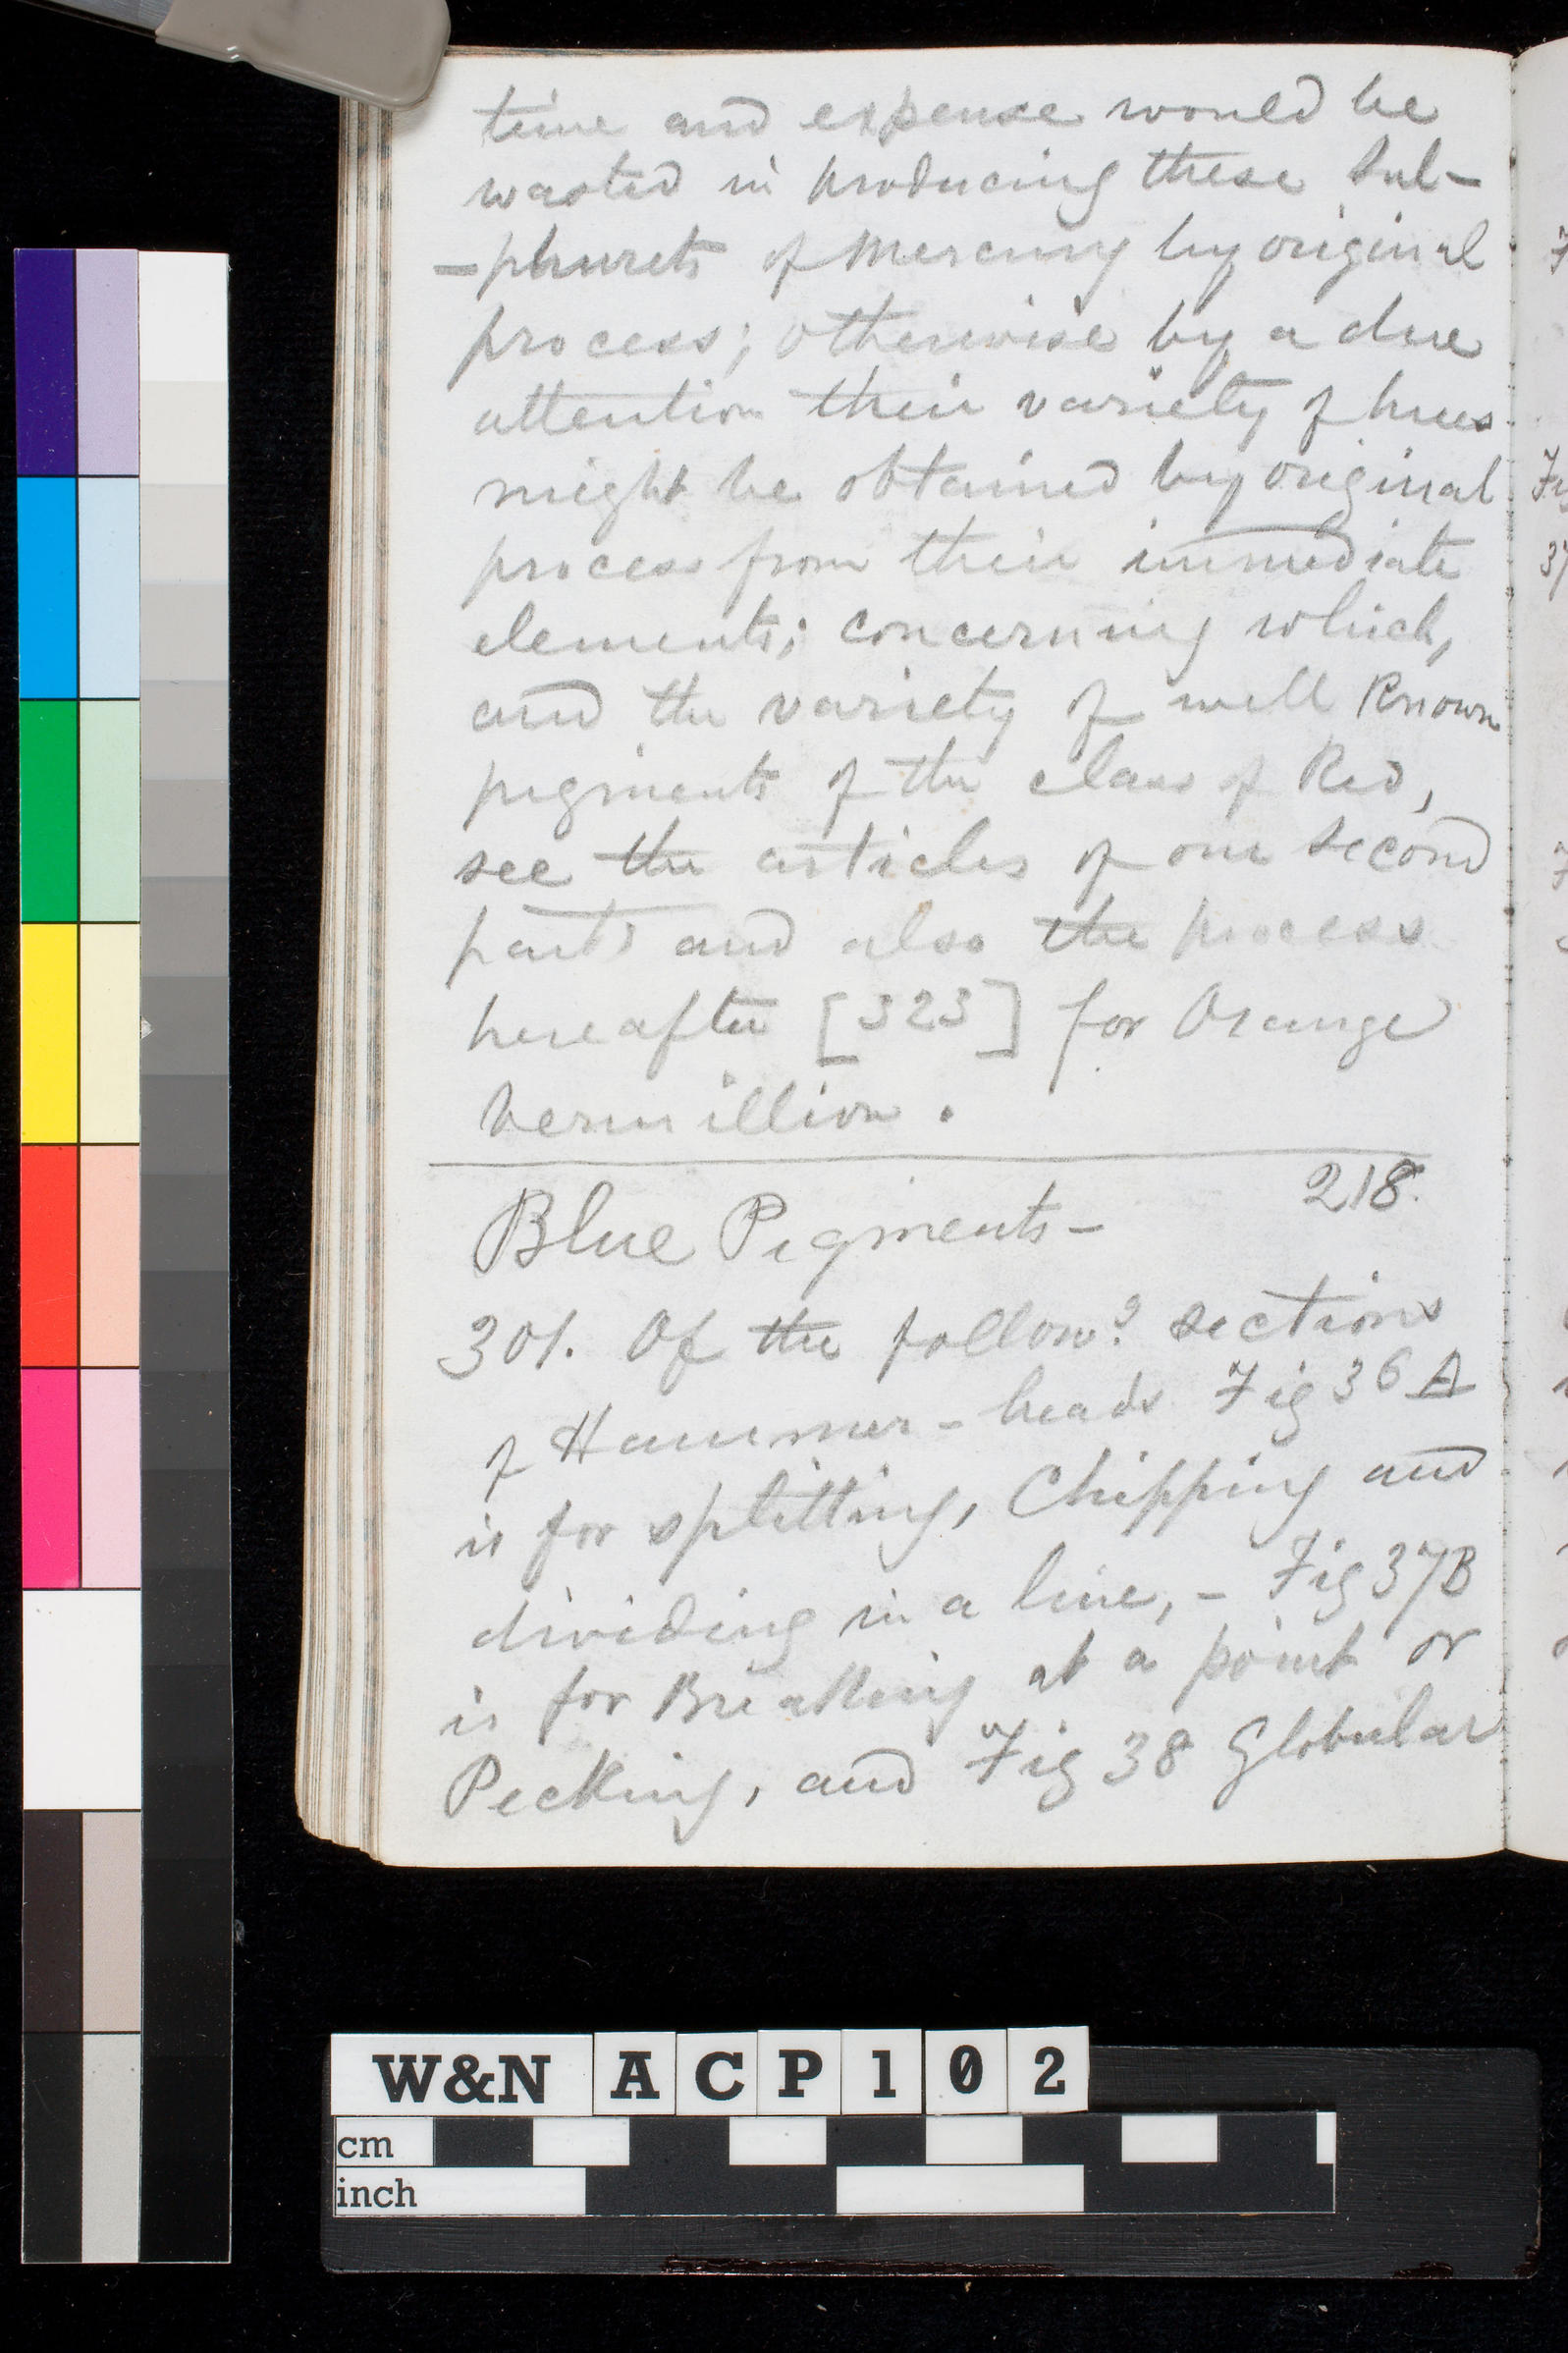 time and expense would be
wasted in producing these Sul-
-phurets of Mercury by original
process; otherwise by a due
attention their variety of hues
might be obtained by original
process from their immediate
elements; concerning which,
and the variety of well Known
pigments of the class of Red,
see the articles of our second
part and also the process
hereafter [323] for Orange
Vermillion.
218.
Blue Pigments-
301. Of the follow? sections
of Hammer-heads Fig 36 A
is for splitting, Chipping and
dividing in a line, - Fig 37B
is for Breaking at a point or
Pecking, and Fig 38 Globular
W&N ACP102
cm
inch